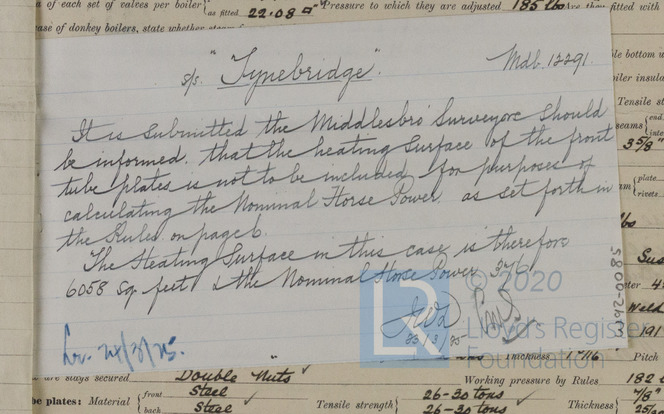 of each set of valves per boiler { as fitted 22.08 □" Pressure to which they are adjusted 185 lbs Are they fitted with
case of donkey boilers, state whether steam
s/s. "Tynebridge".
Mdb. 12291.
It is submitted the Middlesbro' Surveyors should
be informed. that the heating surface of the front
tube plates is not to be included for purposes of
calculating the Nominal Horse Power as set forth in
the Rules on page 6.
The Heating Surface in this case is therefore
6058 sq. feet & the Nominal Horse Power 376.
23/3/25
Lr. 24/3/25.
3942-0085
© 2020
Lloyd's Register
Foundation
le bottom
iler insula
Tensile st
seams { end
3 5/8"
plate
rivets
lbs
Weld
191
are stays secured Double Nuts Working pressure by Rules 182
Thickness 1 1/16 Pitch
be plates: Material { front Steel Tensile strength { 26-30 tons Thickness { 7/8"
back Steel 26-30 tons